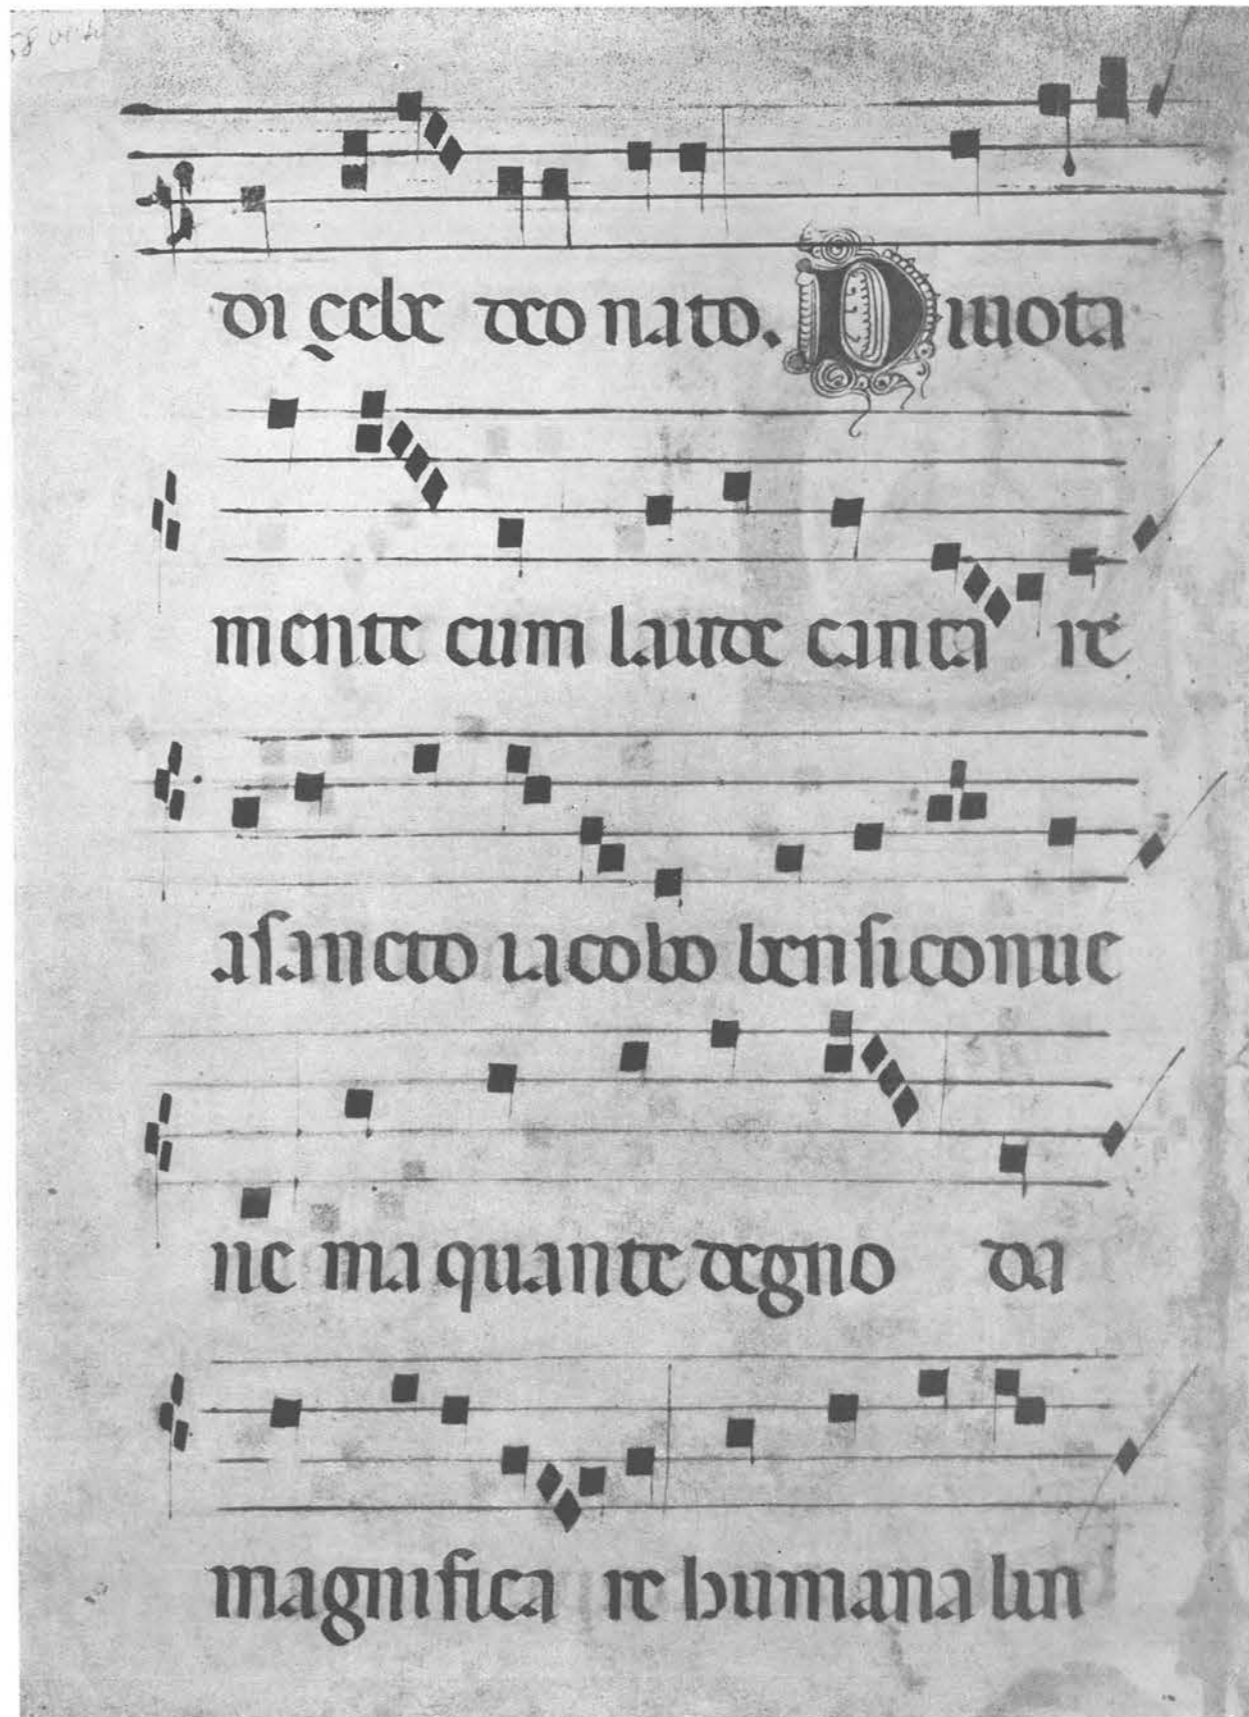 di çelx deo nato. Diuota
mente cum laude canta re
a sancto iacobo ben si conue
ne ma quante degno da
magnifica re humana lin